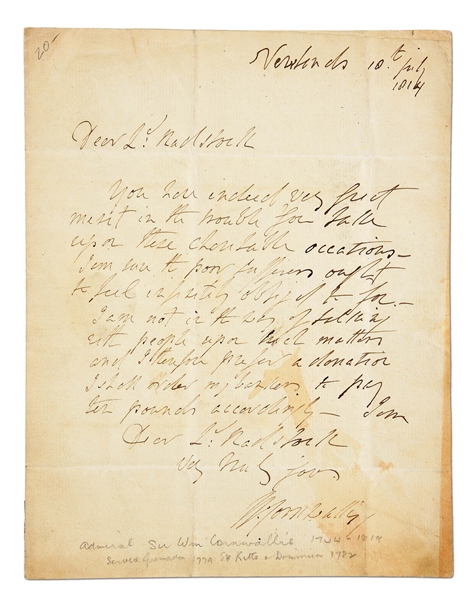 20-
Newlands 10.th July
1814
Dear Ld. Radstock
You have indeed very great
merit in the trouble you take
upon these charitable occasions -
I am sure the poor sufferers ought
to feel infinitely obliged to you. -
I am not in the way of talking
with people upon such matters
and I therefore prefer a donation
I shall order my bankers to pay
ten pounds accordingly - I am
Dear Ld. Radstock
very truly yours
W: Cornwallis
Admiral Sir Wm Cornwallis 1744 - 1819
Served Grenada 1779 St Kitts & Dominica 1782